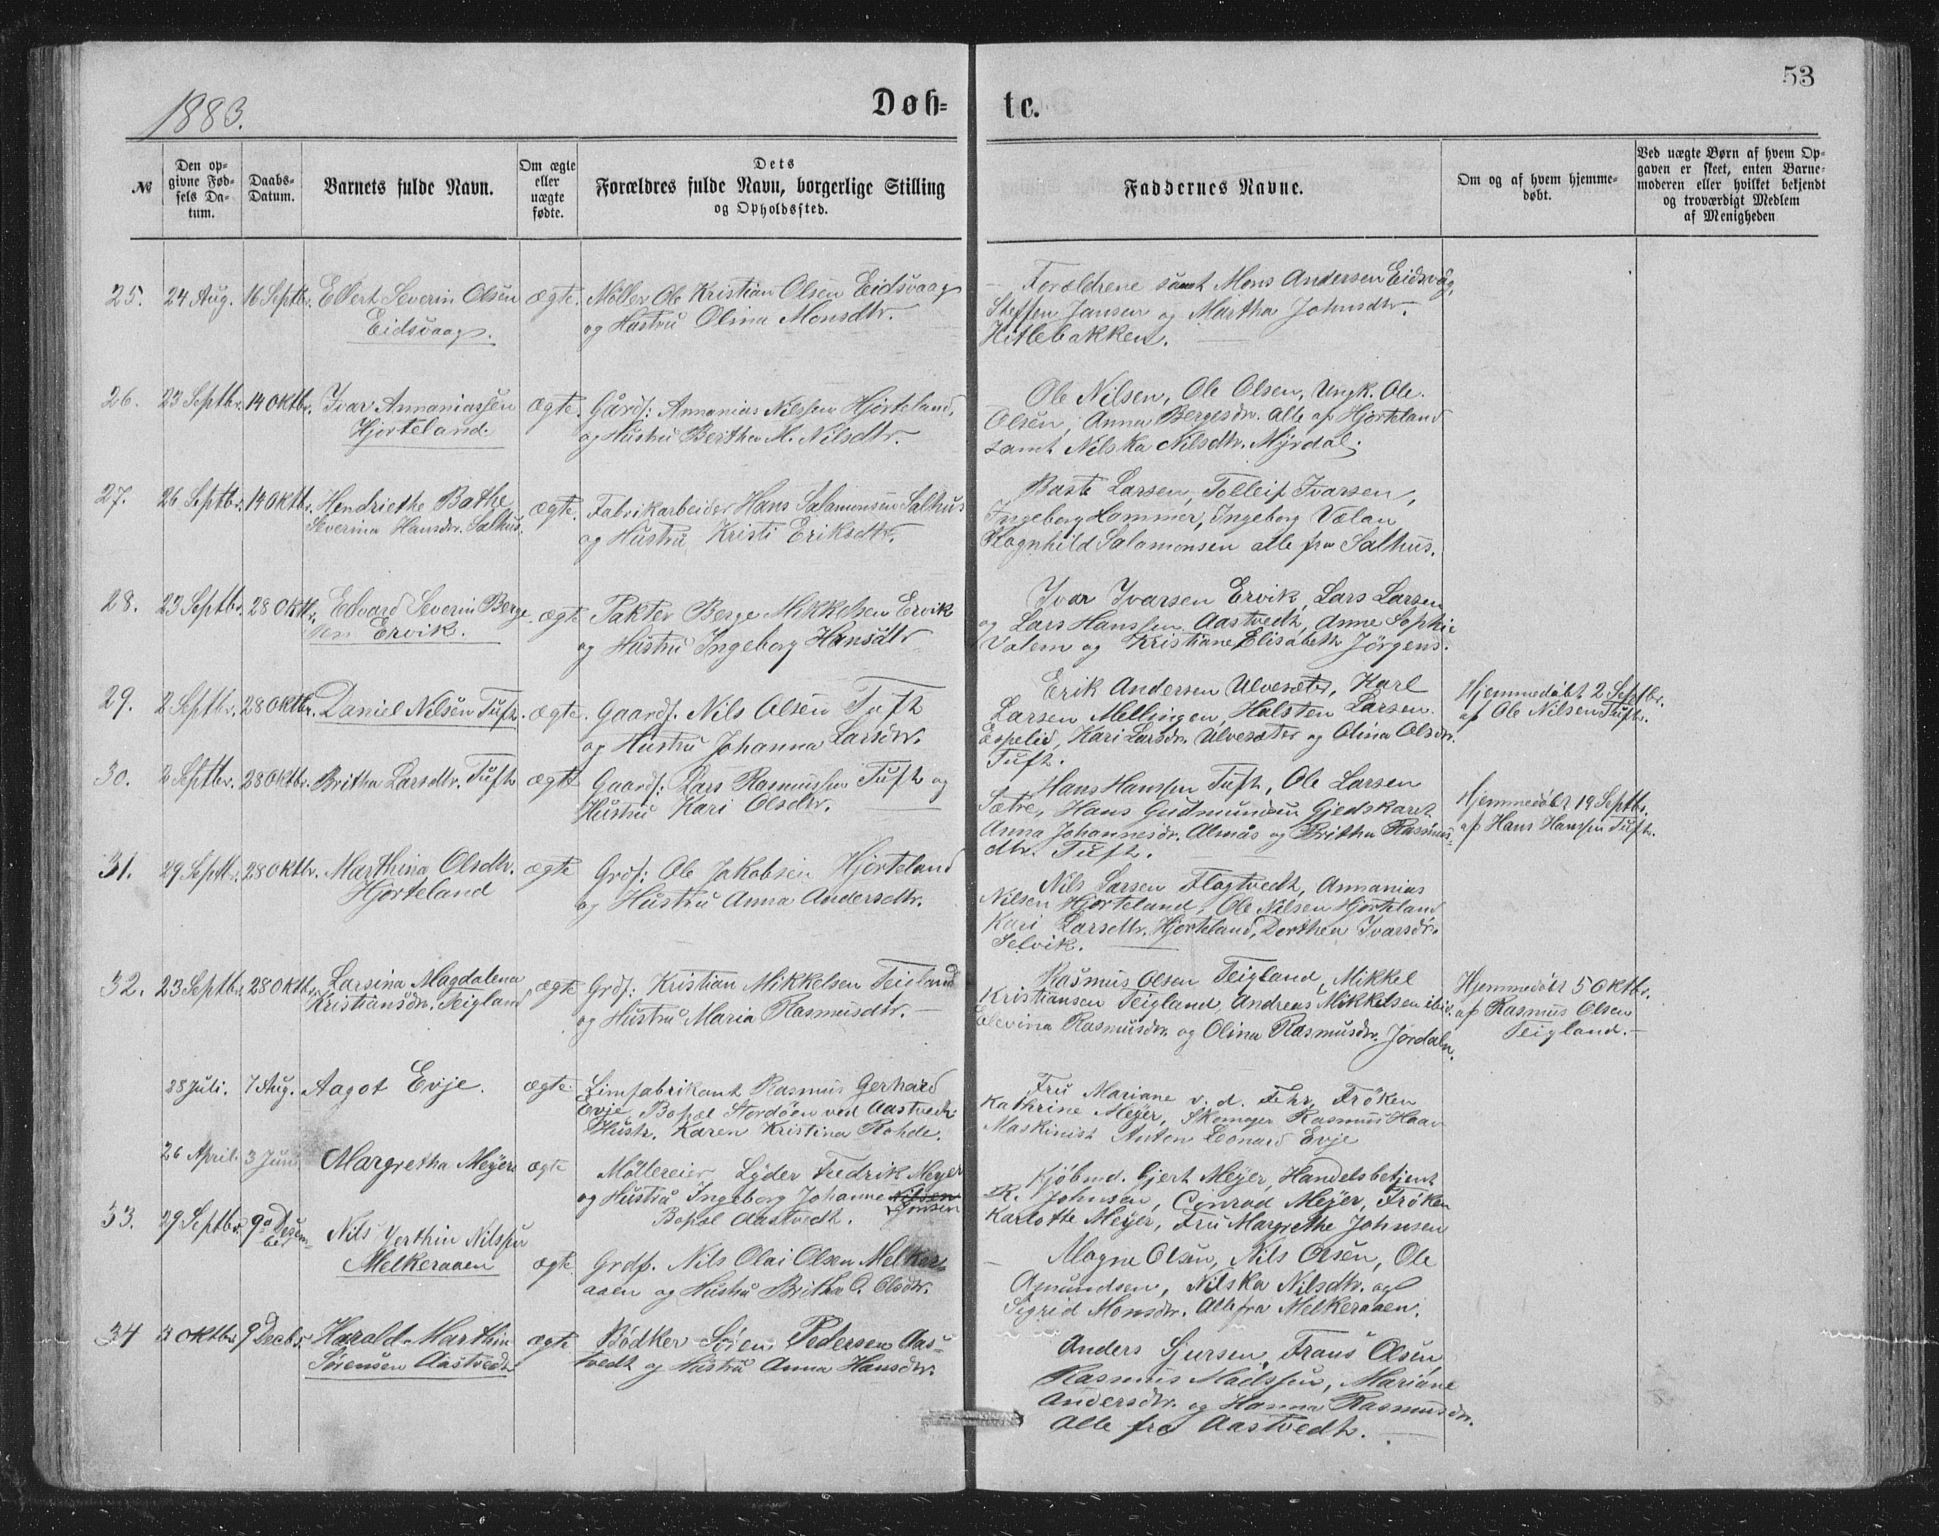 53
1883.
Døb-
te.
№
Den op-
givne Fød-
sels Da-
tum.
Daabs-
Datum.
Barnets fulde Navn.
Om ægte
eller
uægte
fødte.
Dets
Forældres fulde Navn, borgerlige Stilling
og Opholdssted.
Faddernes Navne.
Om og af hvem hjemme-
døbt.
Ved uægte Børn af hvem Op-
gaven er skeet, enten Barne-
moderen eller hvilket bekjendt
og troværdigt Medlem
af Menigheden
25. 24 Aug. 16 Septbr. Ellert Severin Olsen
Eidsvaag.
ægte. Møller Ole Kristian Olsen Eidsvaag
og Hustru Olina Monsdtr.
Forældrene samt Mons Andersen Eidsvåg,
Steffen Jansen og Martha Johnsdtr.
Hitlebakken.
26. 23 Septbr. 14 Oktbr. Ivar Annaniassen
Hjorteland.
ægte. Gårdf: Annanias Nilssen Hjorteland,
og Hustru Bertha M. Nilsdtr.
Ole Nilsen, Ole Olsen, Ungk. Ole
Olsen, Anna Bergesdr. alle af Hjorteland
samt Nilska Nilsdtr. Myrdal.
27. 26 Septbr. 14 Oktbr. Hendriethe Bathe
Severina Hansdr. Salhus.
ægte. Fabrikarbeider Hans Salamonsen Salhus
og Hustru Kristi Eriksdtr.
Baste Larsen, Tolleif Ivarsen,
Ingeborg Hammer, Ingeborg Vælan
Ragnhild Salamonsen alle fra Salhus.
28. 23 Septbr. 28 Oktbr. Edvard Severin Berge
sen Ervik.
ægte Pakter Berge Mikkelsen Ervik
og Hustru Ingeborg Hansdtr
Ivar Ivarsen Ervik, Lars Larsen
og Lars Hanssen Aastvedt, Anne Sophie
Valem og Kristiane Elisabeth Jörgens.
29. 2 Septbr. 28 Oktbr. Daniel Nilsen Tuft.
ægte. Gaardf. Nils Olsen Tuft
og Hustru Johanna Larsdr.
Erik Andersen Ulvesæter, Karl
Larsen Mellingen, Halsten Larsen
Espelid, Kari Larsdr. Ulvesæter og Olina Olsdr.
Tuft.
Hjemmedöbt 2 Septbr.
af Ole Nilsen Tuft.
30. 2 Septbr. 28 Oktbr. Britha Larsdtr. Tuft
ægte Gaardf: Lars Rasmussen Tuft og
Hustru Kari Olsdtr.
Hans Hanssen Tuft, Ole Larsen
Sætre, Hans Gudmundsen Gjedskaret
Anna Johannesdr. Almås og Britha Rasmus-
dtr. Tuft.
Hjemmedöbt 19 Septbr.
af Hans Hanssen Tuft.
31. 29 Septbr. 28 Oktbr. Marthina Olsdtr.
Hjorteland
ægte Grdf: Ole Jakobsen Hjorteland
og Hustru Anna Andersdtr.
Nils Larsen Flagtvedt, Annanias
Nilsen Hjorteland, Ole Nilsen Hjorteland
Kari Larsdtr. Hjorteland, Dorthea Ivarsdr.
Selvik.
32. 23 Septbr. 28 Oktbr. Larsina Magdalena
Kristiansdr. Teigland
ægte Grdf: Kristian Mikkelsen Teigland
og Hustru Maria Rasmusdtr.
Rasmus Olsen Teigland, Mikkel
Kristiansen Teigland, Andreas Mikkelsen ibid.
Rasmusdr. og Olina Rasmusdr. Jordaln.
Hjemmedöbt 5 Oktbr.
af Rasmus Olsen
Teigland.
28 Juli. 7 Aug. Aagot Evje.
ægte. Limfabrikant Rasmus Gerhard
Evje, Bopæl Stordöen ved Aastvedt.
Hustr. Karen Kristina Rohde.
Fru Mariane v. d. Fehr, Fröken
Kathrine Meyer, Skomager Rasmus Haav
Maskinist Anton Leonard Evje
26 April. 3 Juni Margretha Meyer
ægte Möllereier Lyder Fredrik Meyer
og Hustru Ingeborg Johanne Nilsen
Jonsen
Bopæl Aastvedt.
Kjöbmd. Gjert Meyer, Handelsbetjent
R. Johnsen, Conrad Meyer, Fröken
Karlotte Meyer, Fru Margrethe Johnsen
33. 29 Septbr. 9d Desem-
ber
Nils Verthin Nilssen
Melkeraaen
ægte. Grdf. Nils Olai Olsen Melker
aaen og Hustru Britha O. Olsdtr.
Magne Olsen, Nils Olsen, Ole
Amundsen, Nilska Nilsdtr. og
Sigrid Monsdtr. Alle fra Melkeraaen.
34 3 Oktbr. 9d Decbr. Harald Marthin
Sörensen Aastvedt
ægte Bödker Sören Pedersen Aas-
tvedt og Hustru Anna Hansdtr.
Anders Sjursen, Frans Olsen
Rasmus Madssen, Mariane
Andersdtr. og Hanna Rasmusdr.
Alle fra Aastvedt.